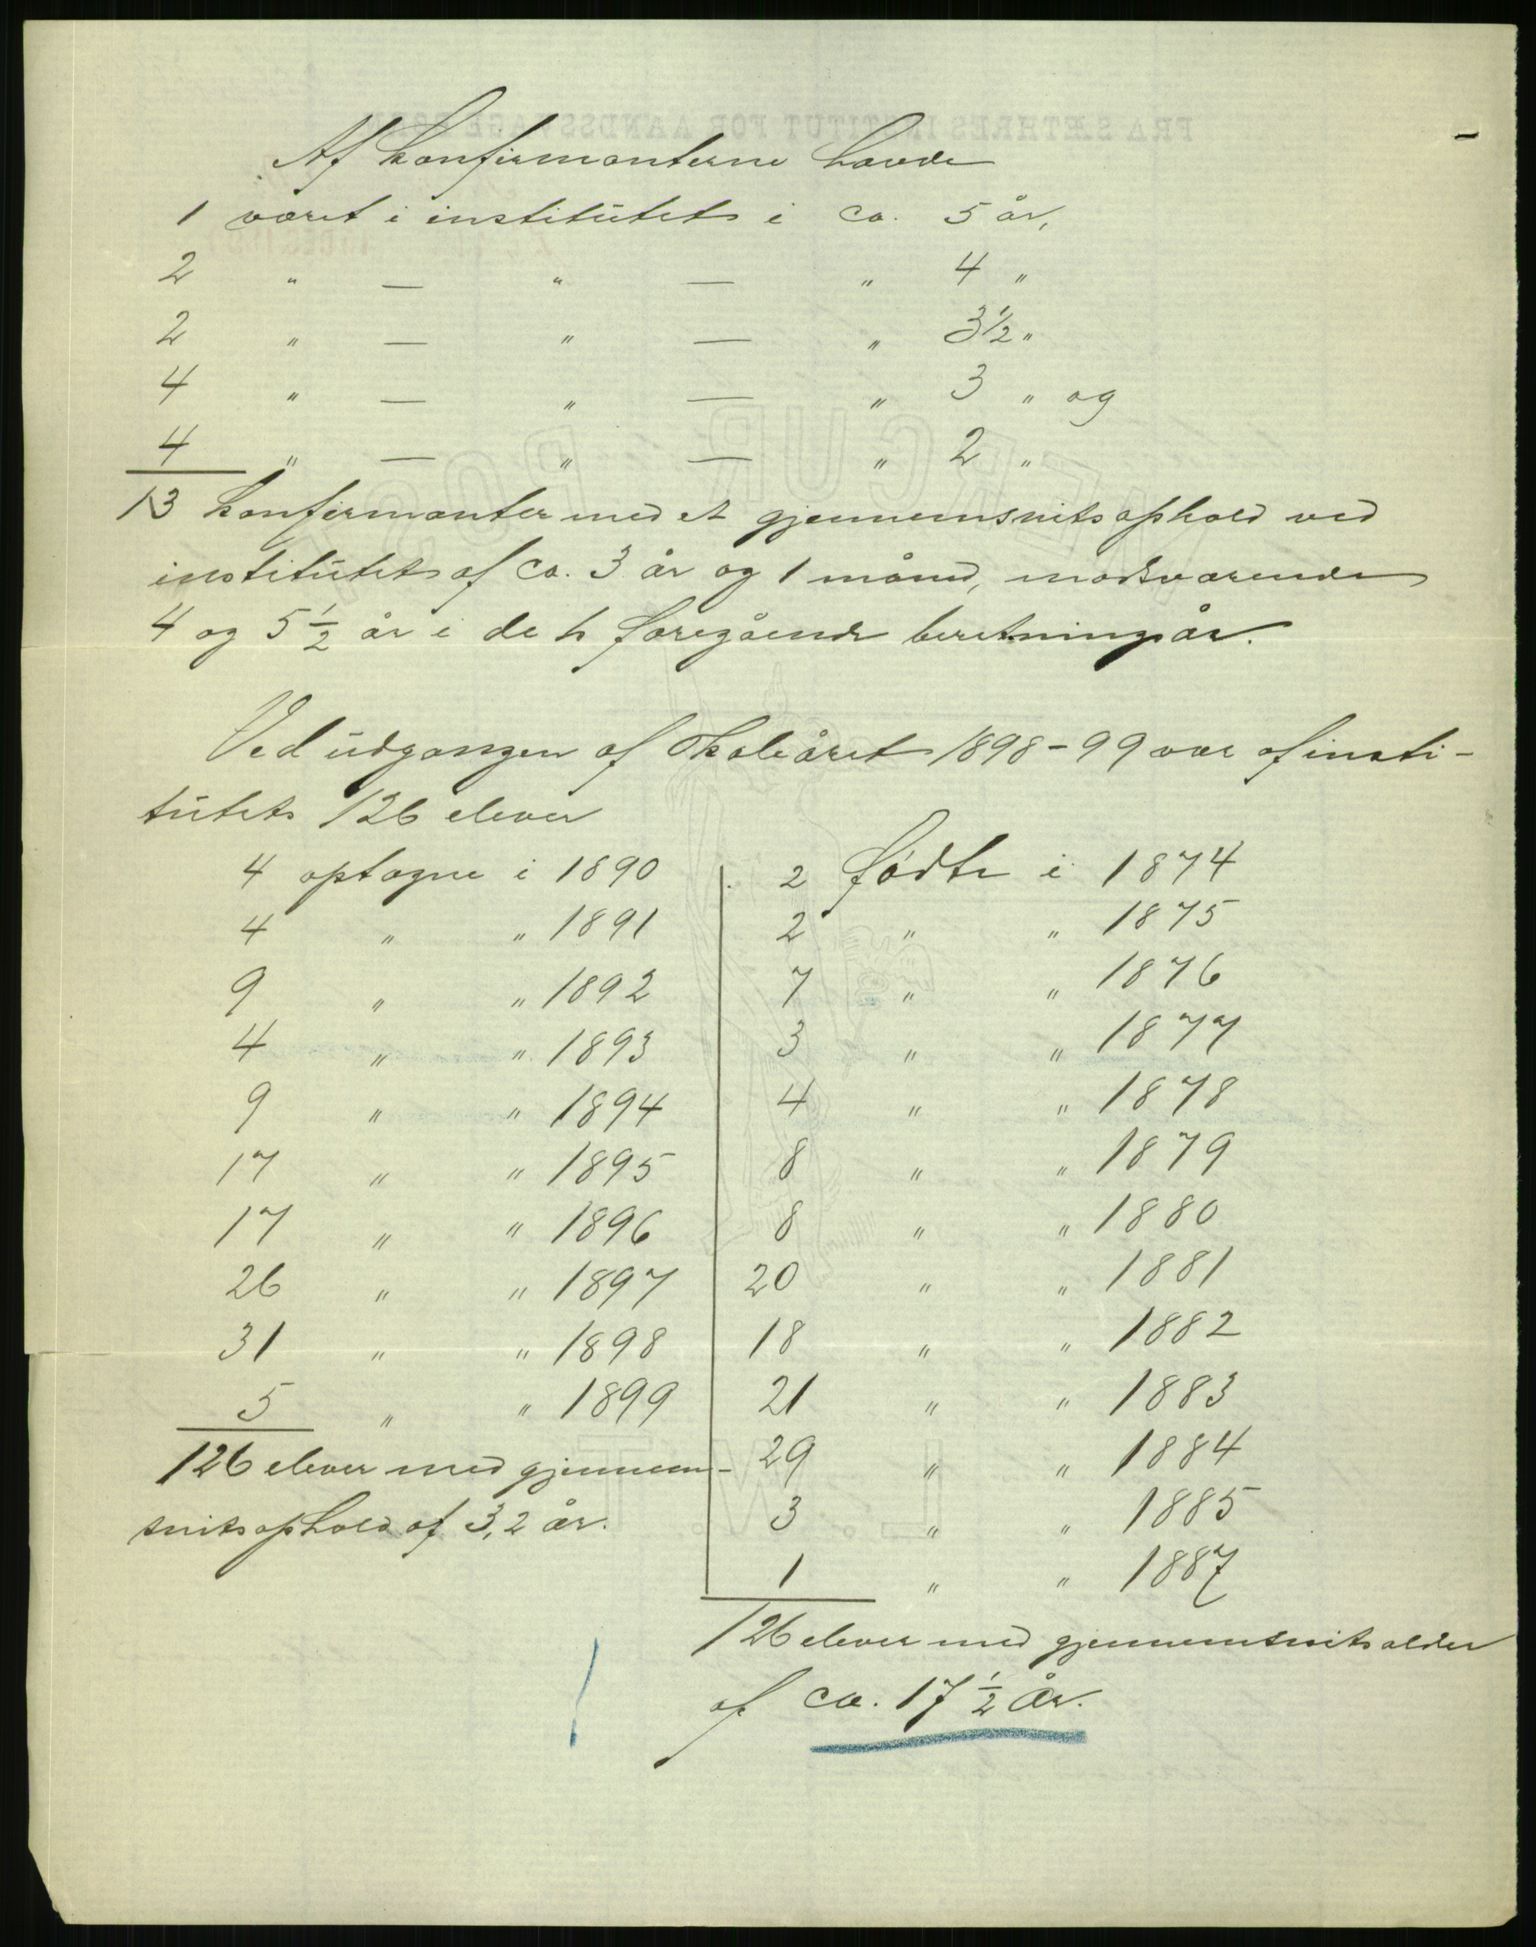 Af konfirmanterne havde
1 været i institutet i ca. 5 år,
2 " — " — " 4 "
2 " — " — " 3½ "
4 " — " — " 3 " og
4 " — " — " 2 "
13 konfirmanter med et gjennemsnitsophold ved
institutet af ca. 3 år og 1 måned, modsvarende
4 og 5½ år i de to foregående beretningsår.
Ved udgangen af skoleåret 1898-99 var af insti-
tutets 126 elever
4 optagne i 1890
4 " " 1891
9 " " 1892
4 " " 1893
9 " " 1894
17 " " 1895
17 " " 1896
26 " " 1897
31 " " 1898
5 " " 1899
126 elever med gjennem-
snitsophold af 3,2 år.
2 fødte i 1874
2 " " 1875
7 " " 1876
3 " " 1877
4 " " 1878
8 " " 1879
8 " " 1880
20 " " 1881
18 " " 1882
21 " " 1883
29 " " 1884
3 " " 1885
1 " " 1887
126 elever med gjennemsnitsalder
af ca. 17½ år.